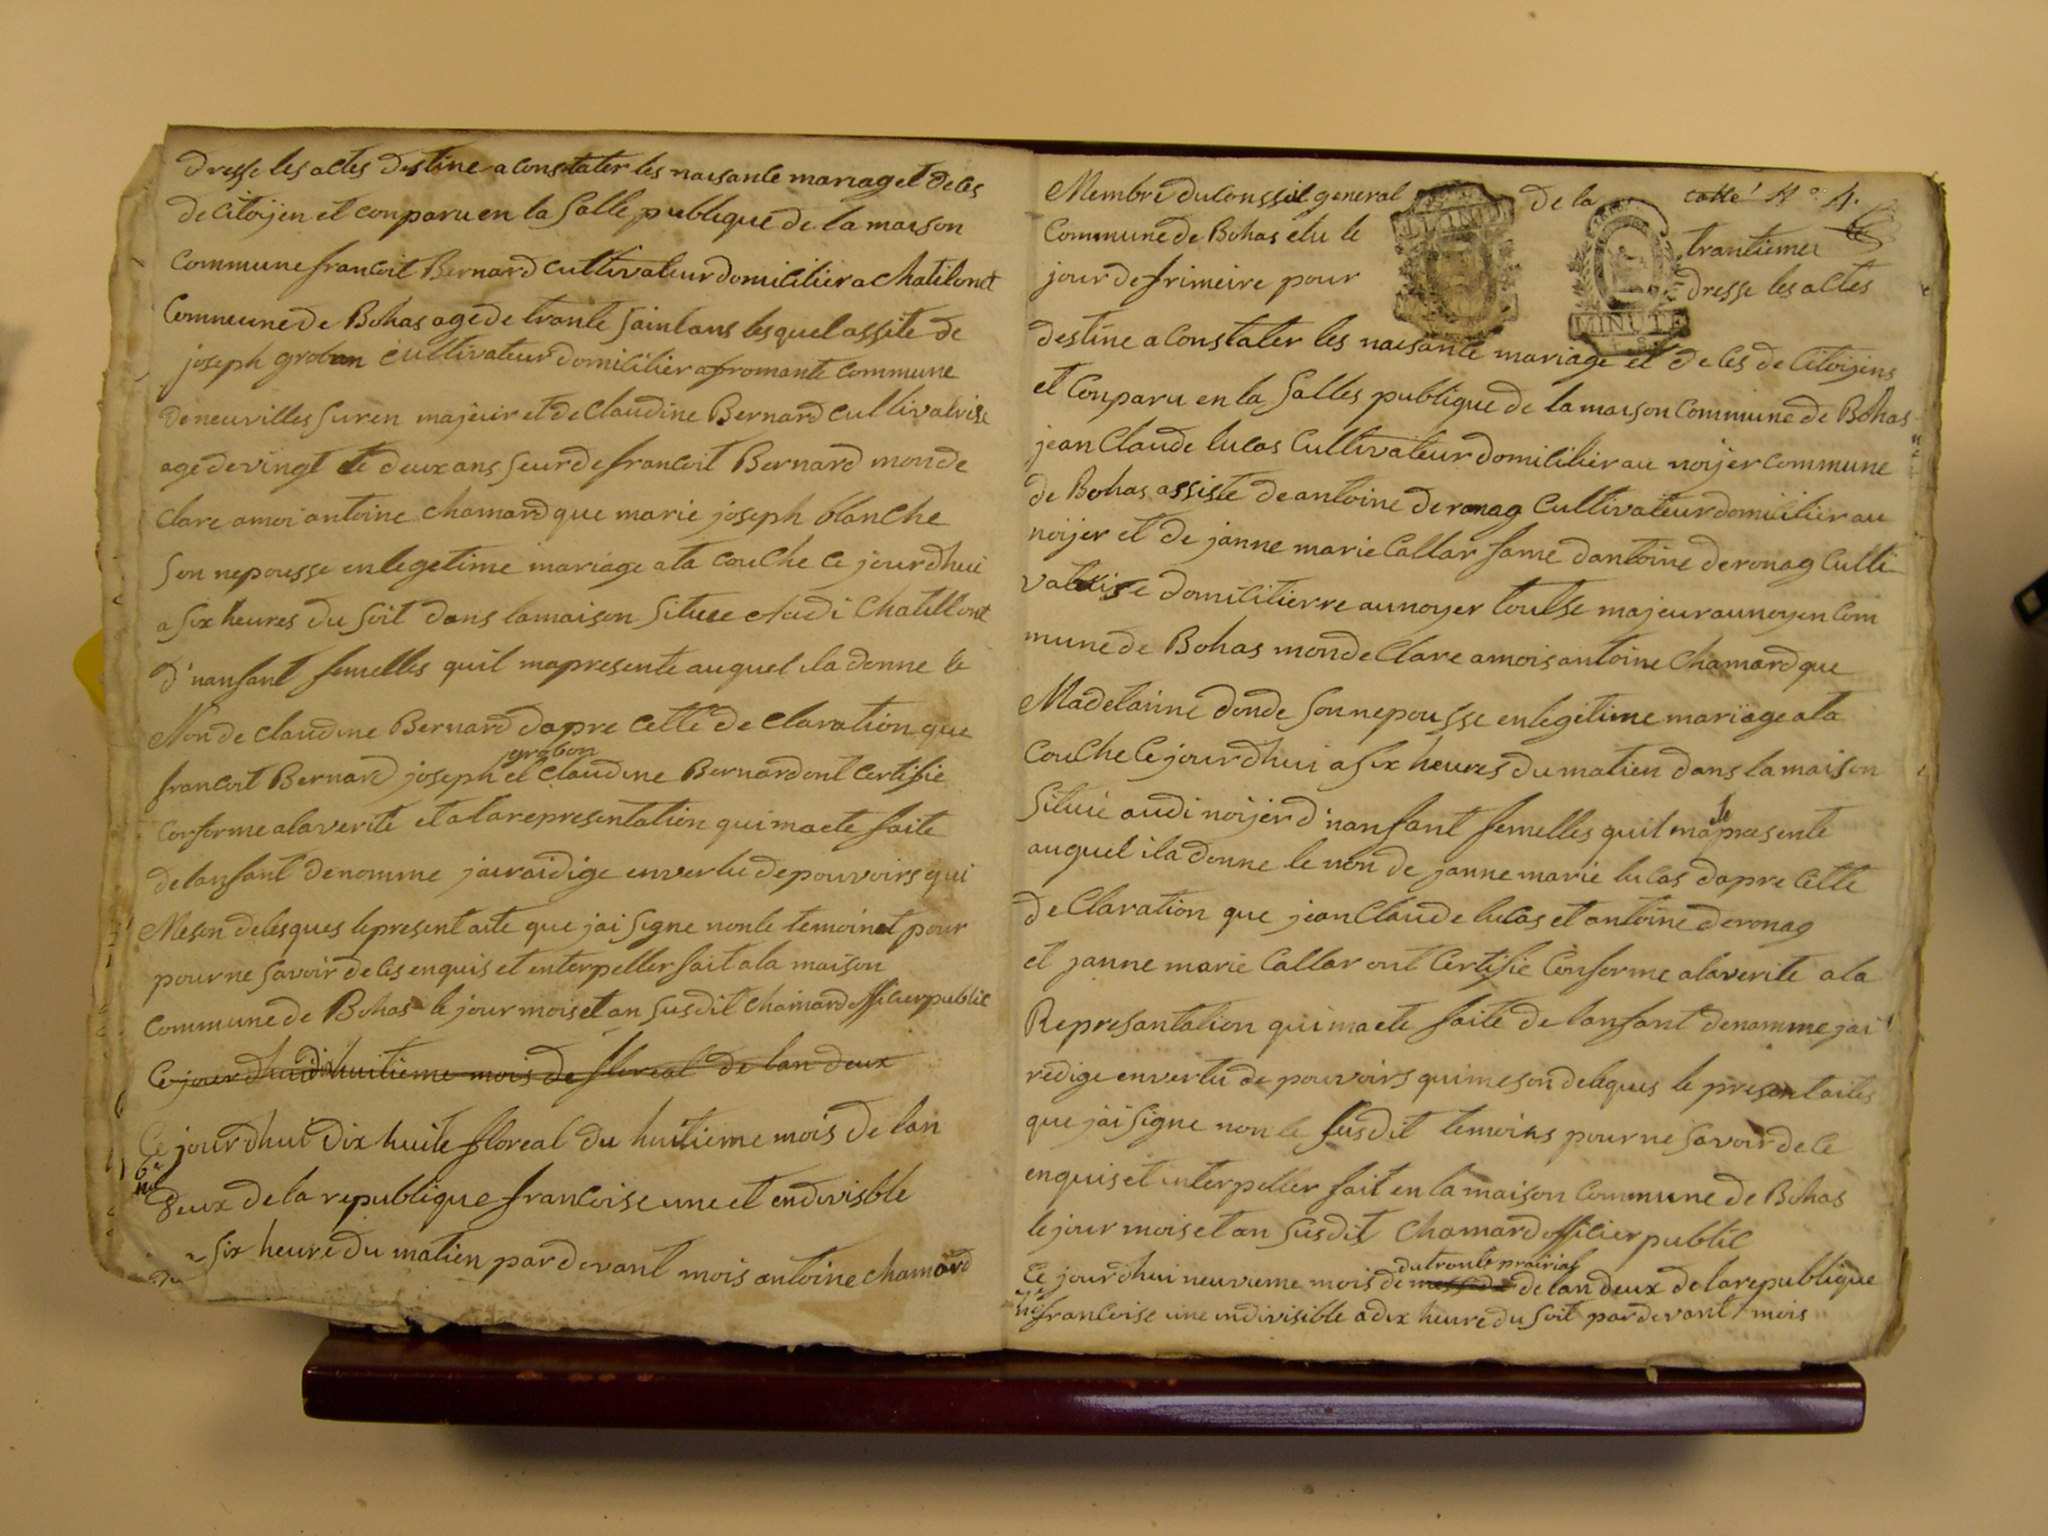 dresse les actes destine a constater les naisante mariaget deces
de citoijen et conparu en la Salle publique de la maison
Commune francoit Bernard cultivateur domicilier a chatilonet
Commeune de Bohas age de trante Saint ans lesquel assite de
joseph grobon cultivateur domicilier a fromante commune
de neuvilles Suren majeuir et de claudine Bernard cullivatrise
age de vingt te deux ans Seur de francoit Bernard mon de
clare a moi antoine chamard que marie joseph blanche
Son nepousse en legetime mariage ata couche ce jourdhui
a Six heures du Soit dans lamaison Situee audi Chatillont
d'nanfant femelles quil mapresente auquel ila donne le
Non de claudine Bernard dapre cette de claration que
grobon
francoit Bernard joseph et Claudine Bernard ont certifie
Conforme alaverite et ala representation qui maete faite
de lanfant denomme jai raidige envertu de pouvoirs qui
Meson delesques lepresent aite que jai Signe nonle temoinet pour
pour ne Savoir de ces enquis et enterpeller fait a la maison
commune de Bohas le jour mois et an Susdit chamard officier public
Ce jour dhui dixhuitieme mois de floreal de lan deux
Ce jourdhui dix huite floreal du huitieme mois de lan
6e
Nce
deux de la republique francoise une et endivisble
a Six heure du matien par devant mois antoine chamard
Membre du conssiel general de la
cotté N° 4.
MINUTE
MINUTE
Commune de Bohas elu le trantieme
jour de frimeire pour dresse les actes
destine a constater les naisante mariage et de ces de citoijens
et Conparu en la Salles publique de la maison commune de Bohas
jean Claude lucas Cultivateur domicilier au noijer commune
de Bohas assiste de antoine deronag Cultivateur domicilier au
noijer et de janne marie Callar fame dantoine deronag Culti
vatrise domicitierre au noyer toutse majeur au noyen Com
mune de Bohas mon de Clare a mois antoine Chamard que
Madelainne donde Sonnepousse en legitime mariage ata
Couche Ce jourdhui a Six heures du matien dans la maison
Situie audi noijer d'nanfant femelles quil ma presente
auquel ila donne le non de janne marie lucas dapre cette
de Claration que jean Claude lucas et antoine deronag
et janne marie Callar ont Certifie Conforme alaverite a la
Represantation qui maete faite de lanfant denomme jai
redige envertu de pouvoirs qui meson deleques le presantaites
que jai Signe non le Susdit temoins pour ne Savoir de ce
enquis et interpeller fait en la maison Commune de Bohas
le jour mois et an Susdit Chamard officier public
du tronte prairial
Ce jourdhui neuvieme mois de messidor de lan deux de la republique
francoise une indivisible a dix heure du Soit par devant mois